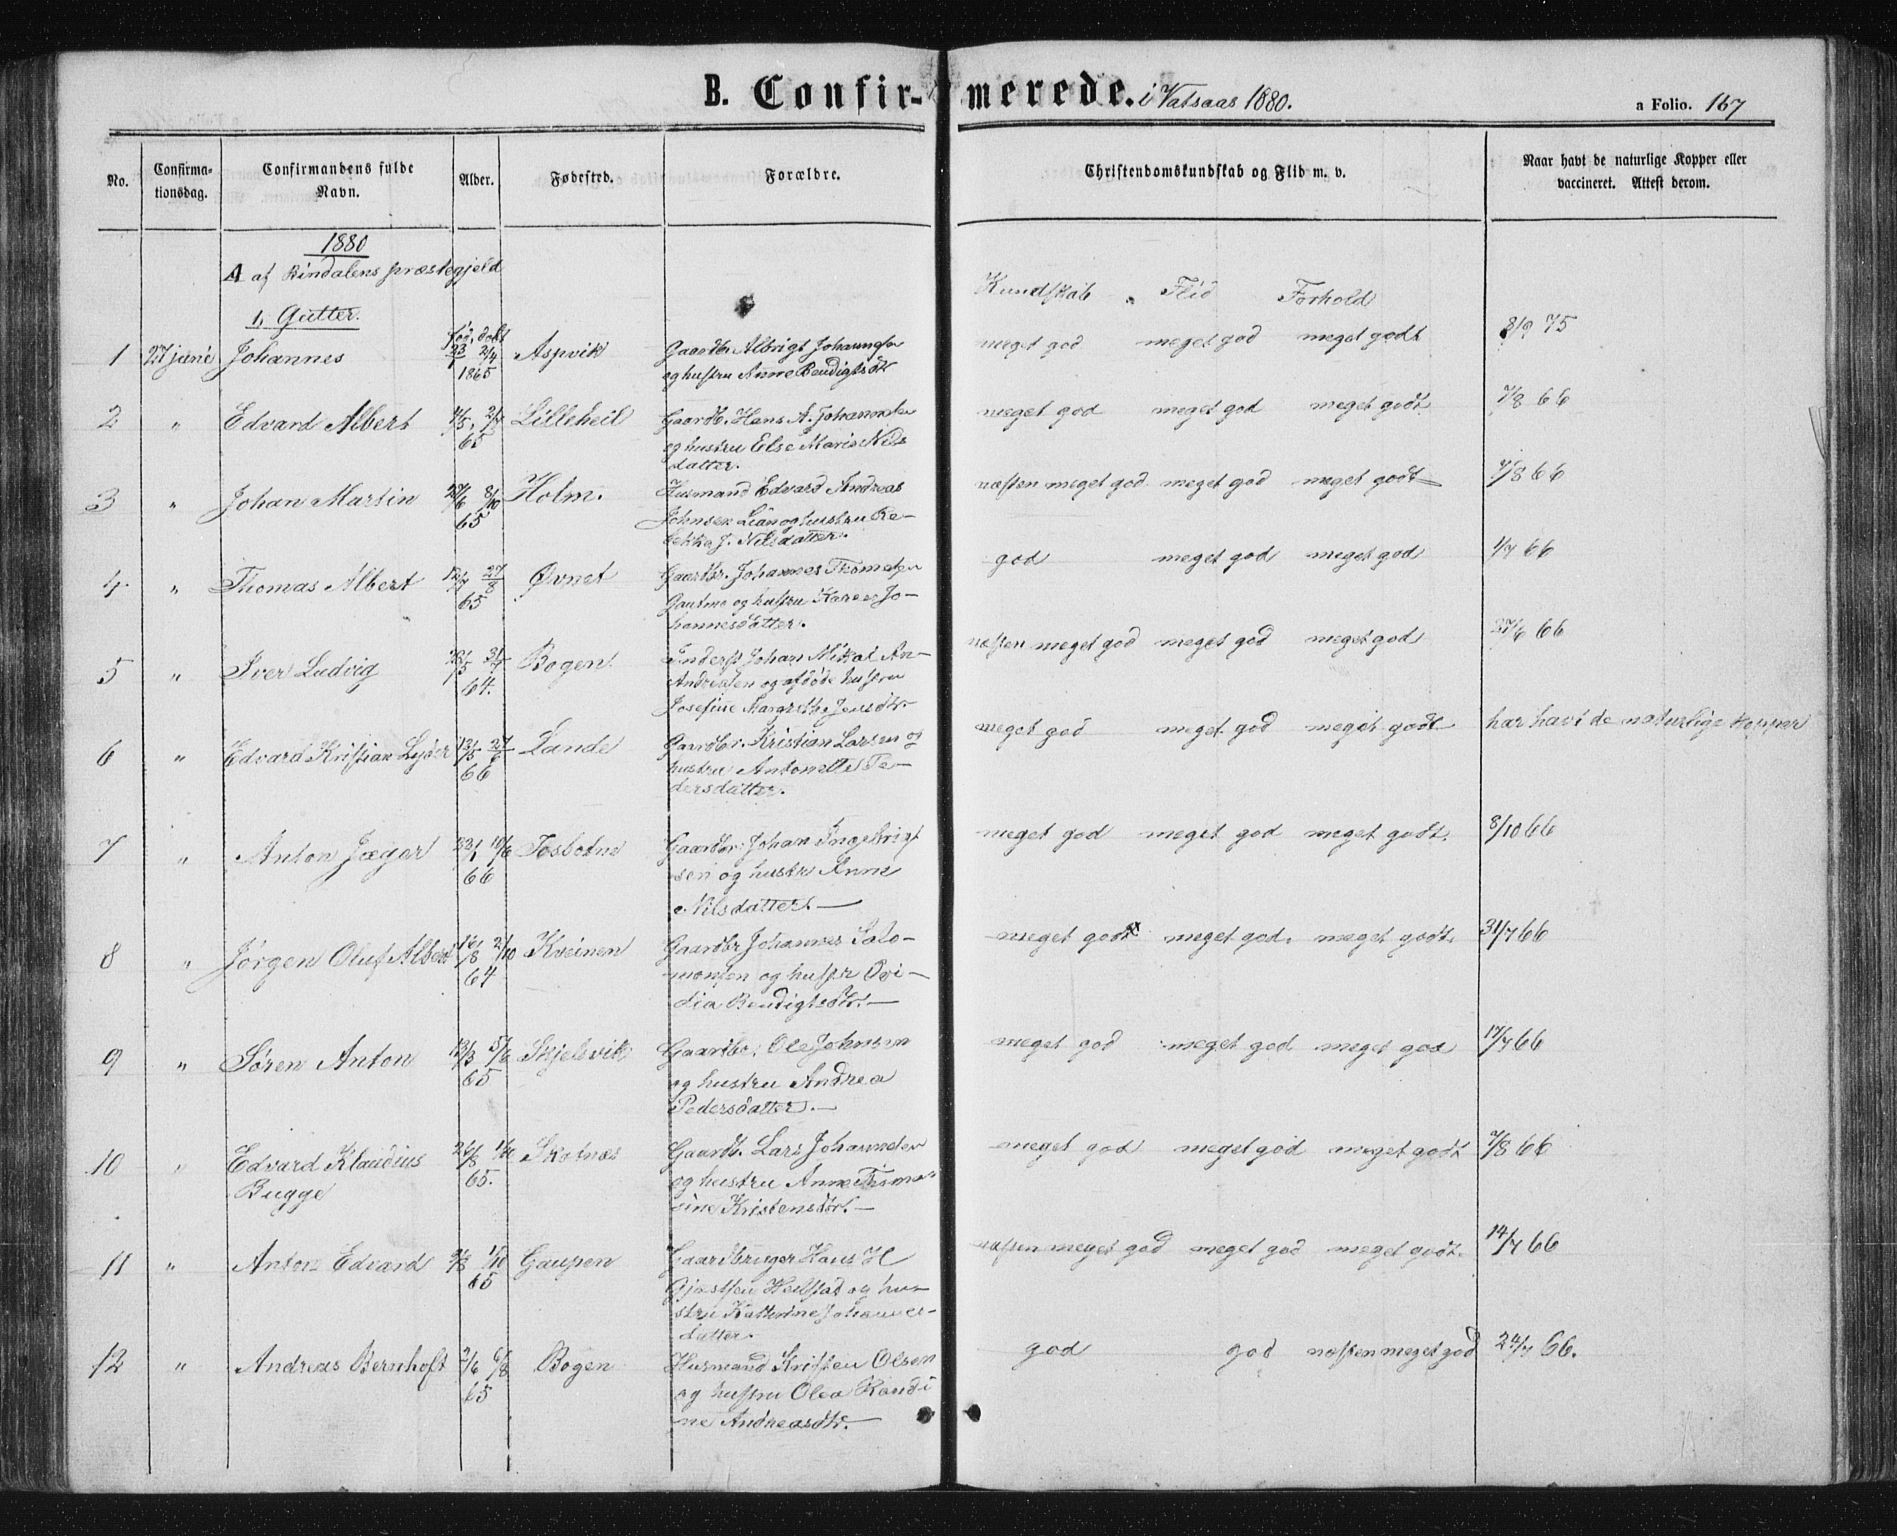 B. Confirmerede. i Vatsaas 1880.
a Folio. 167
No.
Confirmationsdag.
Confirmandens fulde Navn.
Alder.
Fødested.
Forældre.
Christendomskundskab og Flid m. v.
Naar havt de naturlige Kopper eller vaccineret. Attest derom.
1880
A af Bindalens præstegjeld
1, Gutter.
Kundskab Flid Forhold
1 27 juni Johannes fød, døbt 23/1 2/4 1865 Aspvik Gaardbr. Albrigt
og hustru Anne Bendigtsdtr
meget god meget god meget godt 8/9 75
2 " Edvard Albert 4/5 2/7 65 Lilleheil Gaardb. Hans A. Johannesen
og hustru Else Maria Nils
datter.
meget god meget god meget godt 7/8 66
3 " Johan Martin 27/6 8/10 65 Holm. Husmand Edvard Andreas
Johnsen Lian og hustru Re-
bekka J. Nilsdatter.
næsten meget god meget god meget godt 7/8 66
4 " Thomas Albert 12/7 27/8 65 Øvnet Gaardbr. Johannes Thomesen
og hustru Karen Jo-
hannesdatter.
god meget god meget god 1/7 66
5 " Iver Ludvig 31/7 64. Bogen Inderst Johan Mikal An-
Andreasen og afdøde hustru
Josefine Margrethe Jensdtr.
næsten meget god meget god meget god 27/6 66
6 " Edvard Kristian Lyder 13/5 27/6 66 Lande Gaardbr. Kristian Larsen og
hustru Antonette Pe-
dersdatter.
meget god meget god meget godt har havt de naturlige kopper
7 " Anton Jæger 23/1 10/6 66 Tosbotne Gaardbr. Johan Ingebrigt
sen og hustr Anne
Nilsdatter.—
meget god meget god meget godt. 8/10 66
8 " Jørgen Oluf Albert 16/8 2/10 64 Kveinen Gaardbr Johannes Salo-
monsen og hustr Ovi-
dia Bendigtsdtr.—
meget godt meget god. meget godt. 31/7 66
9 " Søren Anton 13/3 5/6 65 Skjelsvik Gaardbr. Ole Johnsen
og hustru Andrea
Pedersdatter.—
meget god meget god meget god 17/7 66
10 " Edvard Klaudius
Bugge 26/8 65. Skotnæs Gaardb. Lars Johannesen
og hustru Anne Thoma-
sine Kristensdtr.—
meget god meget god meget godt 7/8 66
11 " Anton Edvard 9/8 1/10 65 Gaupen Gaardbruger Hans H
Heilstad og hu-
stru Katherine Johannes-
datter.
næsten meget god meget god meget godt. 14/7 66
12 " Andreas Bernhoft 2/6 6/8 65 Bogen Husmand Kristen Olsen
og hustru Olea Randi
ne Andreasdtr.—
god god næsten meget god 24/7 66.